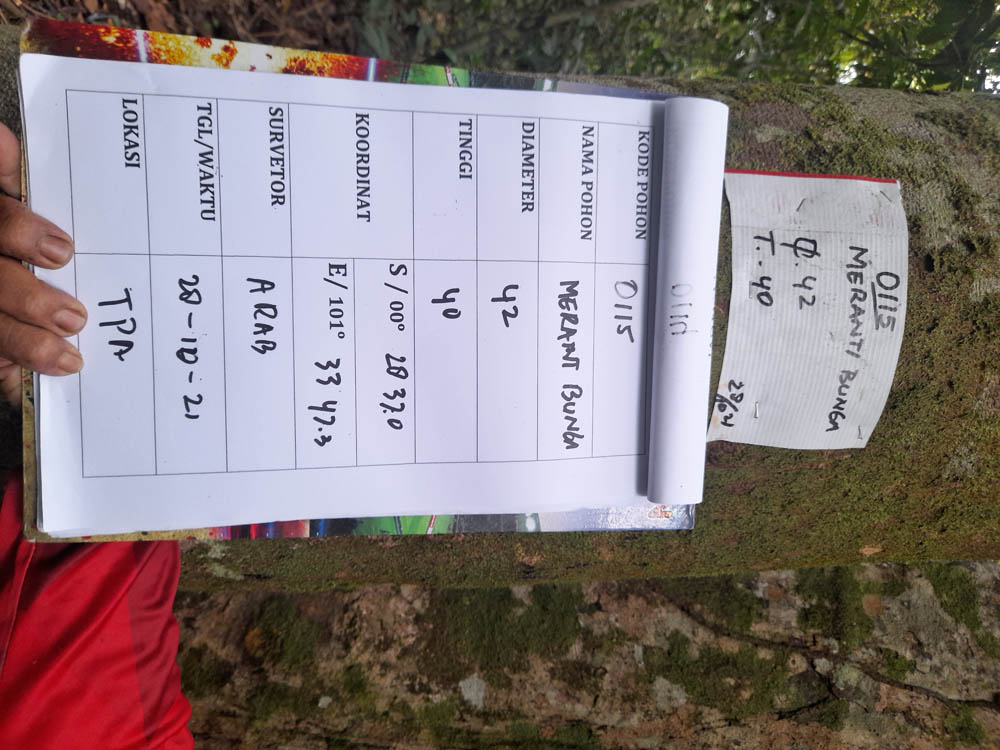 0115
MERANTI BUNGA
₵. 42
T.. 40
28/10 21
KODE POHON 0115
NAMA POHON MERANT BUNGA
DIAMETER 42
TINGGI 40
KOORDINAT
S / 00° 28 37.0
E/ 101° 33 47.3
SURVETOR ARAB
TGL/WAKTU 28-10-21
LOKASI TPA